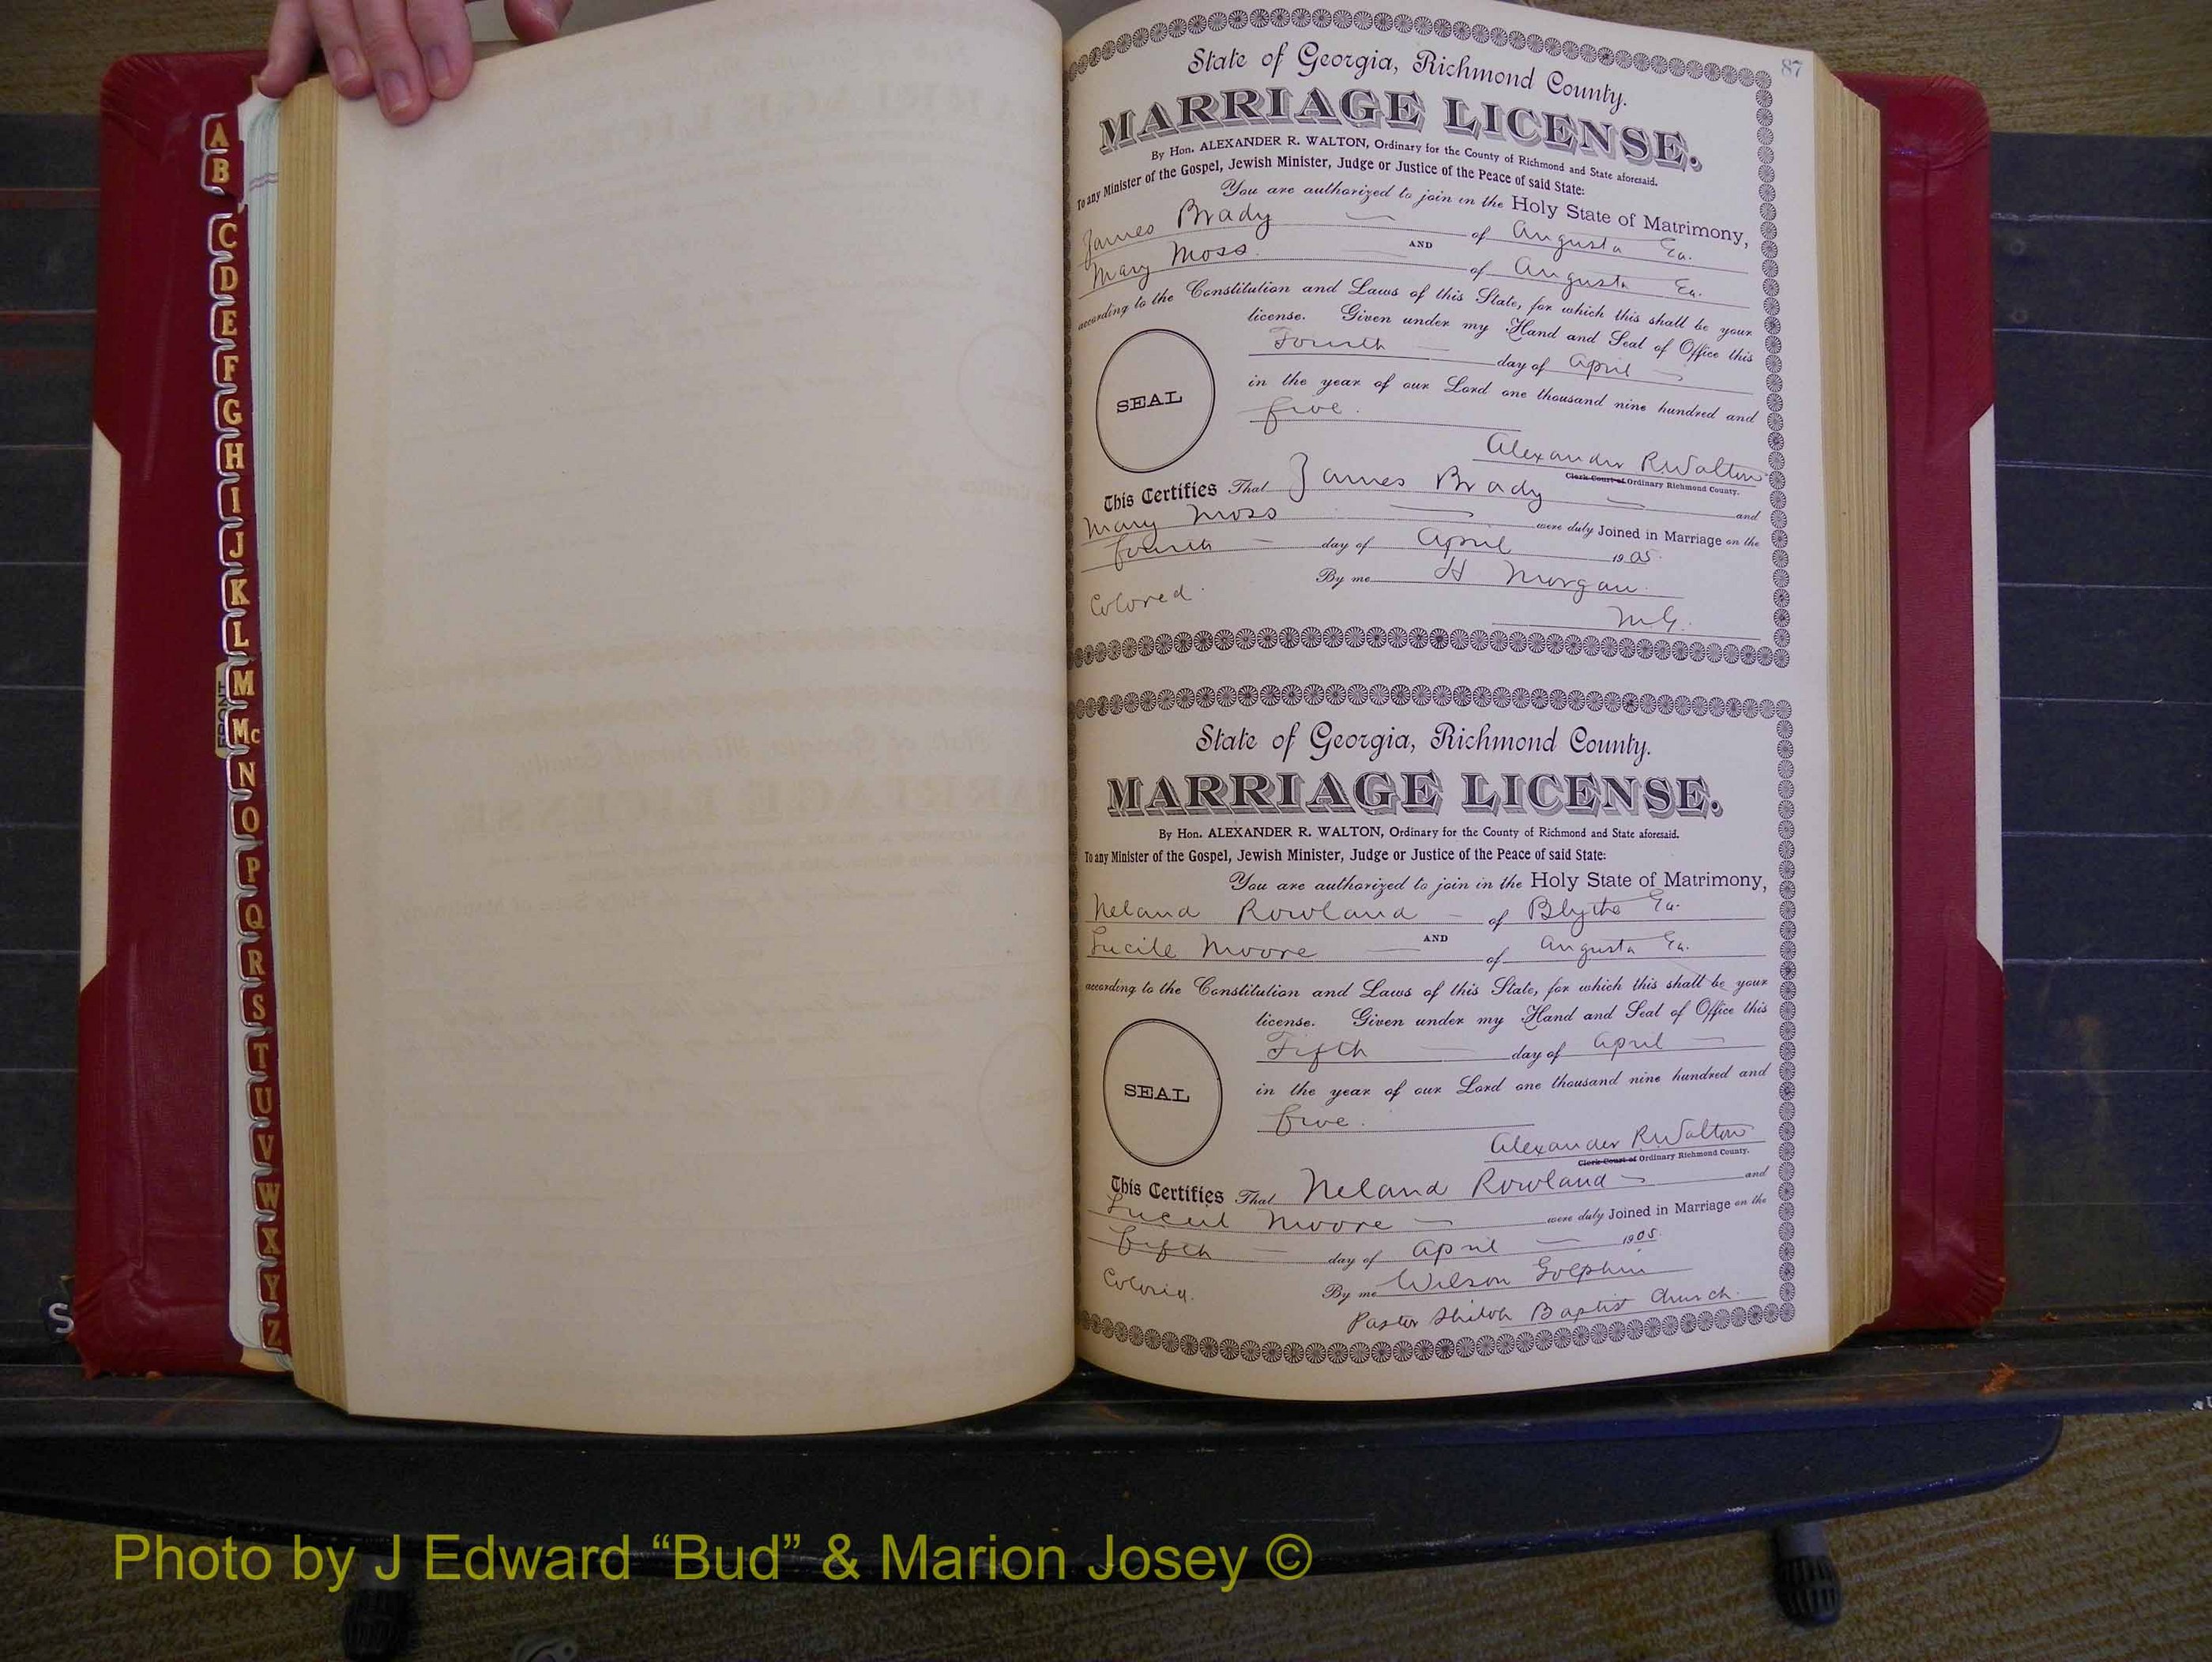 A
B
C
D
E
F
G
H
I
J
K
L
M
Mc
N
O
P
Q
R
S
T
U
V
W
X
Y
Z
FRONT
87
State of Georgia, Richmond County.
MARRIAGE LICENSE.
By Hon. ALEXANDER R. WALTON, Ordinary for the County of Richmond and State aforesaid.
To any Minister of the Gospel, Jewish Minister, Judge or Justice of the Peace of said State:
You are authorized to join in the Holy State of Matrimony,
James Brady of Augusta Ga.
AND
Mary Moss of Augusta Ga.
according to the Constitution and Laws of this State, for which this shall be your
license. Given under my Hand and Seal of Office this
Fourth day of April
in the year of our Lord one thousand nine hundred and
five.
SEAL
Alexander R Walton
Clerk Court of Ordinary Richmond County.
This Certifies That James Brady and
Mary Moss were duly Joined in Marriage on the
fourth day of April 1905
By me H Morgan.
Colored.
M.G.
State of Georgia, Richmond County.
MARRIAGE LICENSE.
By Hon. ALEXANDER R. WALTON, Ordinary for the County of Richmond and State aforesaid.
To any Minister of the Gospel, Jewish Minister, Judge or Justice of the Peace of said State:
You are authorized to join in the Holy State of Matrimony,
Neland Rowland of Blythe Ga.
AND
Lucile Moore of Augusta Ga.
according to the Constitution and Laws of this State, for which this shall be your
license. Given under my Hand and Seal of Office this
Fifth day of April
in the year of our Lord one thousand nine hundred and
five.
SEAL
Alexander R Walton
Clerk Court of Ordinary Richmond County.
This Certifies That Neland Rowland and
Moore were duly Joined in Marriage on the
fifth day of April 1905.
Colored.
By me Wilson Golphin
Pastor Shiloh Baptist Church.
Photo by J Edward “Bud” & Marion Josey ©